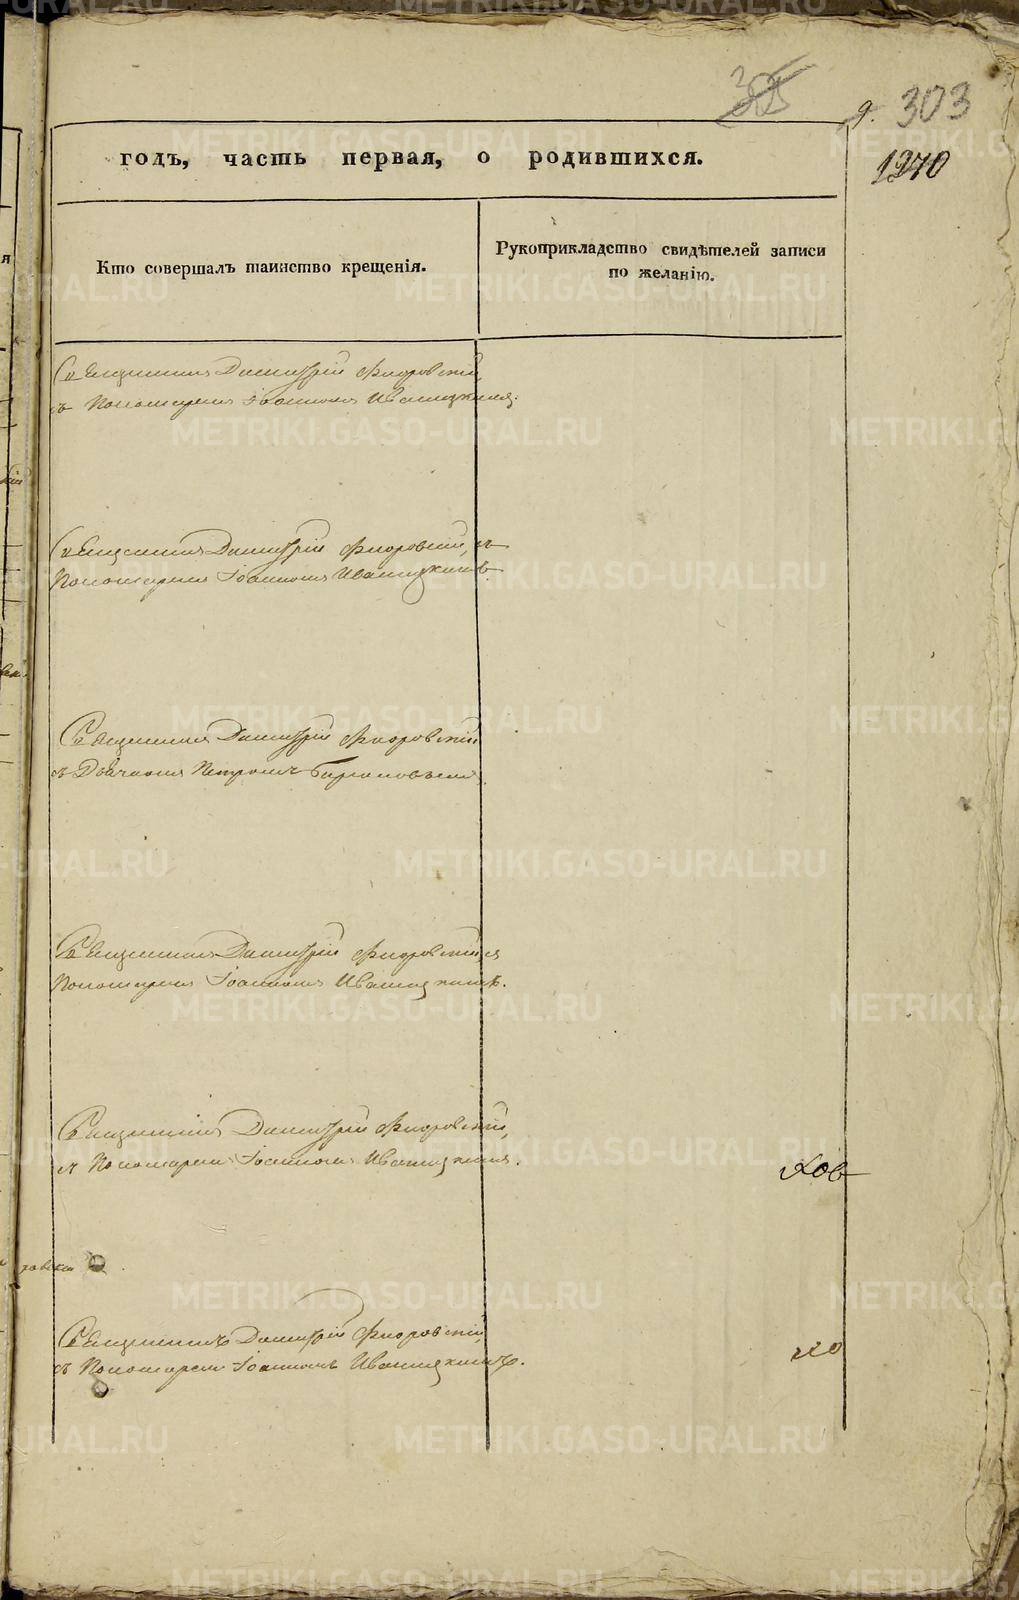 303
1240
годъ, часть первая, о родившихся.
Кто совершалъ таинство крещенія.
Рукоприкладство свидѣтелей записи
по желанію.
Священникъ Димитрій Флоровскій,
съ Пономаремъ Іоанномъ Иваницкимъ.
Священникъ Димитрій Флоровскій, съ
Пономаремъ Іоанномъ Иваницкимъ.
Священникъ Димитрій Флоровскій
съ Дьячкомъ Петромъ
Священникъ Димитрій Флоровскій, съ
Пономаремъ Іоанномъ Иваницкимъ.
Священникъ Димитрій Флоровскій,
съ Пономаремъ Іоанномъ Иваницкимъ.
ков
Священникъ Димитрій Флоровскій,
съ Пономаремъ Іоанномъ Иваницкимъ.
METRIKI.GASO-URAL.RU